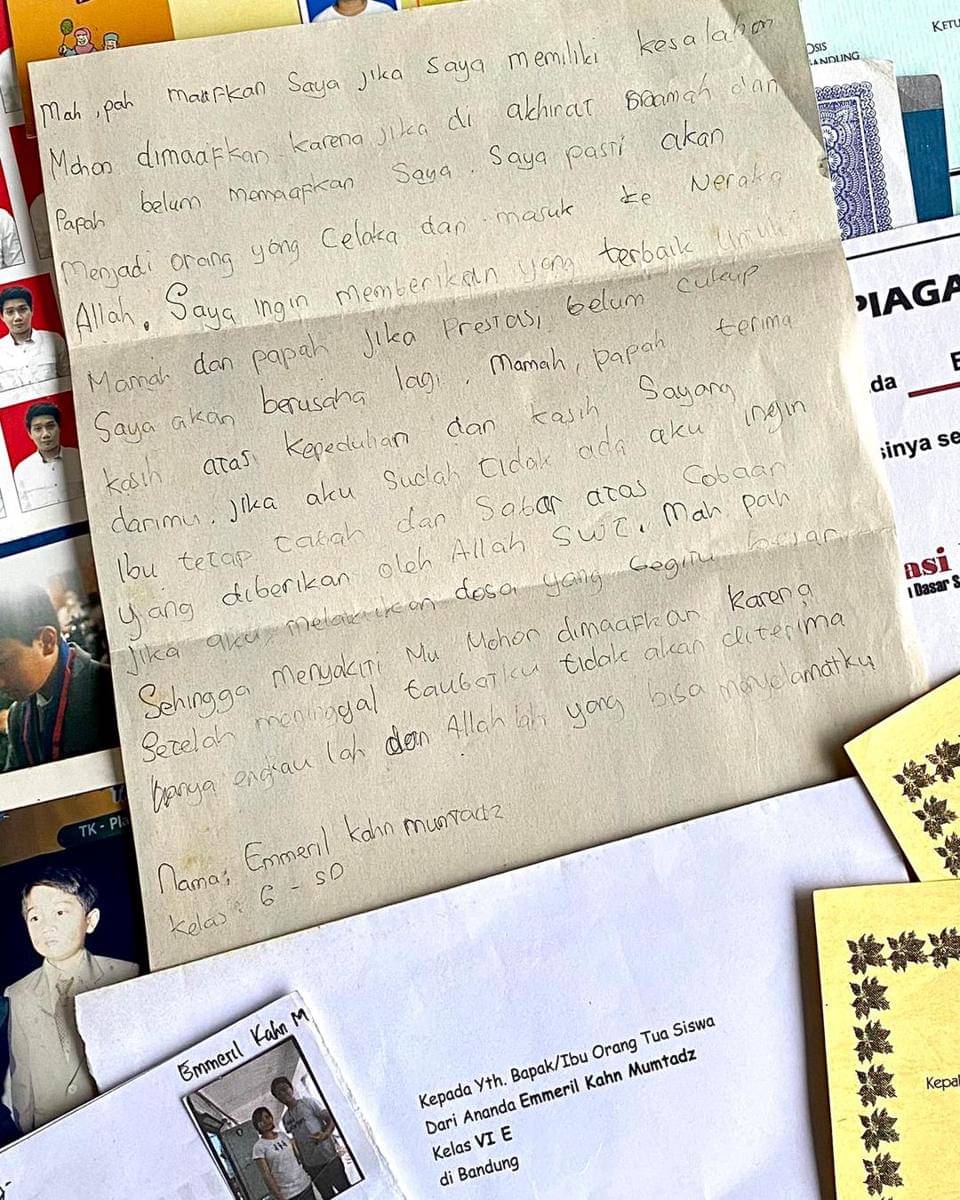 Mah, pah maafkan Saya jika Saya memiliki kesalahan
Mohon dimaafkan karena jika di akhirat mamah dan
Papah belum memaafkan Saya. Saya pasti akan
Menjadi orang yang Celaka dan masuk ke Neraka
Allah. Saya ingin memberikan yang terbaik untuk
Mamah dan papah jika Prestasi belum cukup
Saya akan berusaha lagi. Mamah, papah terima
kasih atas kepedulian dan kasih Sayang
darimu. jika aku Sudah tidak ada aku ingin
Ibu tetap tabah dan Sabar atas Cobaan
yang diberikan oleh Allah SWT. Mah pah
jika aku melakukan dosa yang begitu besar
Sehingga menyakiti Mu Mohon dimaafkan karena
Setelah meninggal taubatku tidak akan diterima
hanya engkau lah dan Allah lah yang bisa menyelamatku
Nama: Emmeril kahn mumtadz
kelas: 6 - SD
OSIS
BANDUNG
KETU
PIAGA
da
sinya se
asi
Dasar S
TK - Pla
Emmeril Kahn M
Kepada Yth. Bapak/Ibu Orang Tua Siswa
Dari Ananda Emmeril Kahn Mumtadz
Kelas VI E
di Bandung
Kepal